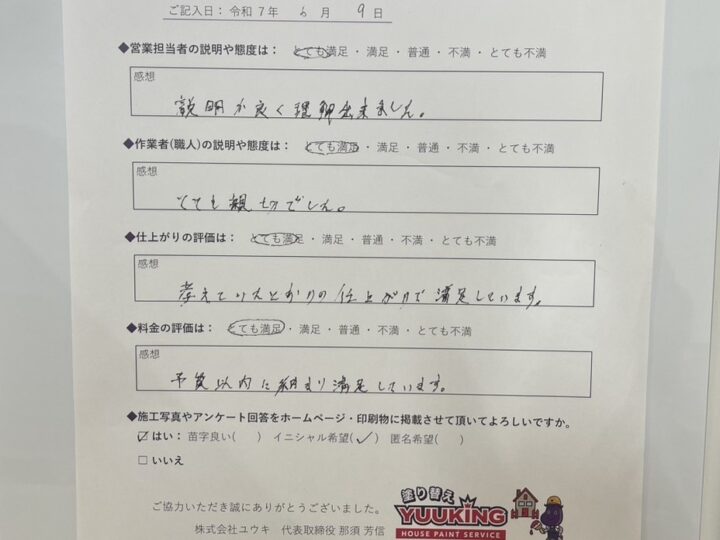 ご記入日：令和7年 6月 9日
◆営業担当者の説明や態度は： とても満足・満足・普通・不満・とても不満
感想
説明が良く理解出来ました。
◆作業者(職人)の説明や態度は： とても満足・満足・普通・不満・とても不満
感想
とても親切でした。
◆仕上がりの評価は： とても満足・満足・普通・不満・とても不満
感想
考えていたとおりの仕上がりで満足しています。
◆料金の評価は： とても満足・満足・普通・不満・とても不満
感想
予算以内に納まり満足しています。
◆施工写真やアンケート回答をホームページ・印刷物に掲載させて頂いてよろしいですか。
☑ はい： 苗字良い( ) イニシャル希望(✓) 匿名希望( )
□ いいえ
ご協力いただき誠にありがとうございました。
株式会社ユウキ 代表取締役 那須 芳信
塗り替え
YUUKING
HOUSE PAINT SERVICE